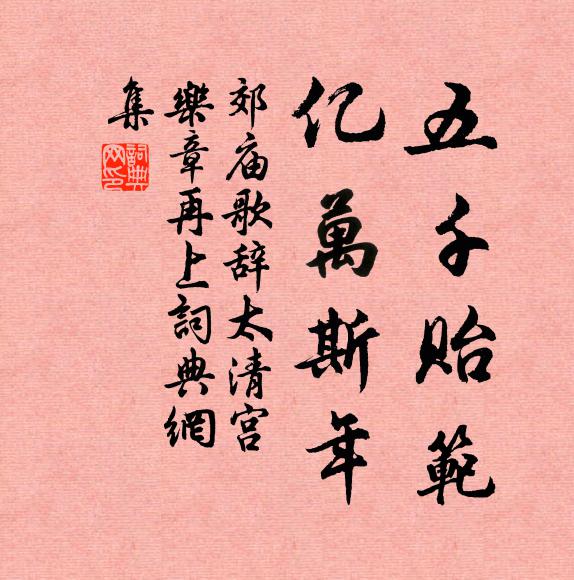 五千贻範
亿萬斯年
郊庙歌辞太清宫
樂章再上詞典網
集
詞典网印